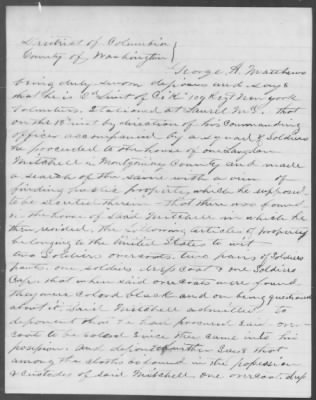 District of Columbia }
County of Washington }
George A. Matthews
being duly sworn deposes and says
that he is 2d Lieut of Co "K" 109th Regt New York
Volunteers. Stationed at Laurel Md, that
on the 18th inst by direction of his Commanding
officer accompanied by a squad of Soldiers
he proceeded to the house of one
Mitchell in Montgomery County and made
a search of the same with a view of
finding public property, which he supposed
to be secreted therein - that there was found
in the house of said Mitchell in which he
then resided. The following articles of property
belonging to the United States to wit
two Soldiers overcoats. two pairs of Soldiers
pants. one Soldiers dress coat & one Soldiers
Cap. that when said overcoats were found
they were colored black and on being questioned
about it, said Mitchell admitted to
deponent that he had procured said over
coats to be colored since they came into his
possession. and deponent further says that
among the cloths so found in the possession
& custody of said Mitchell one overcoat. dress